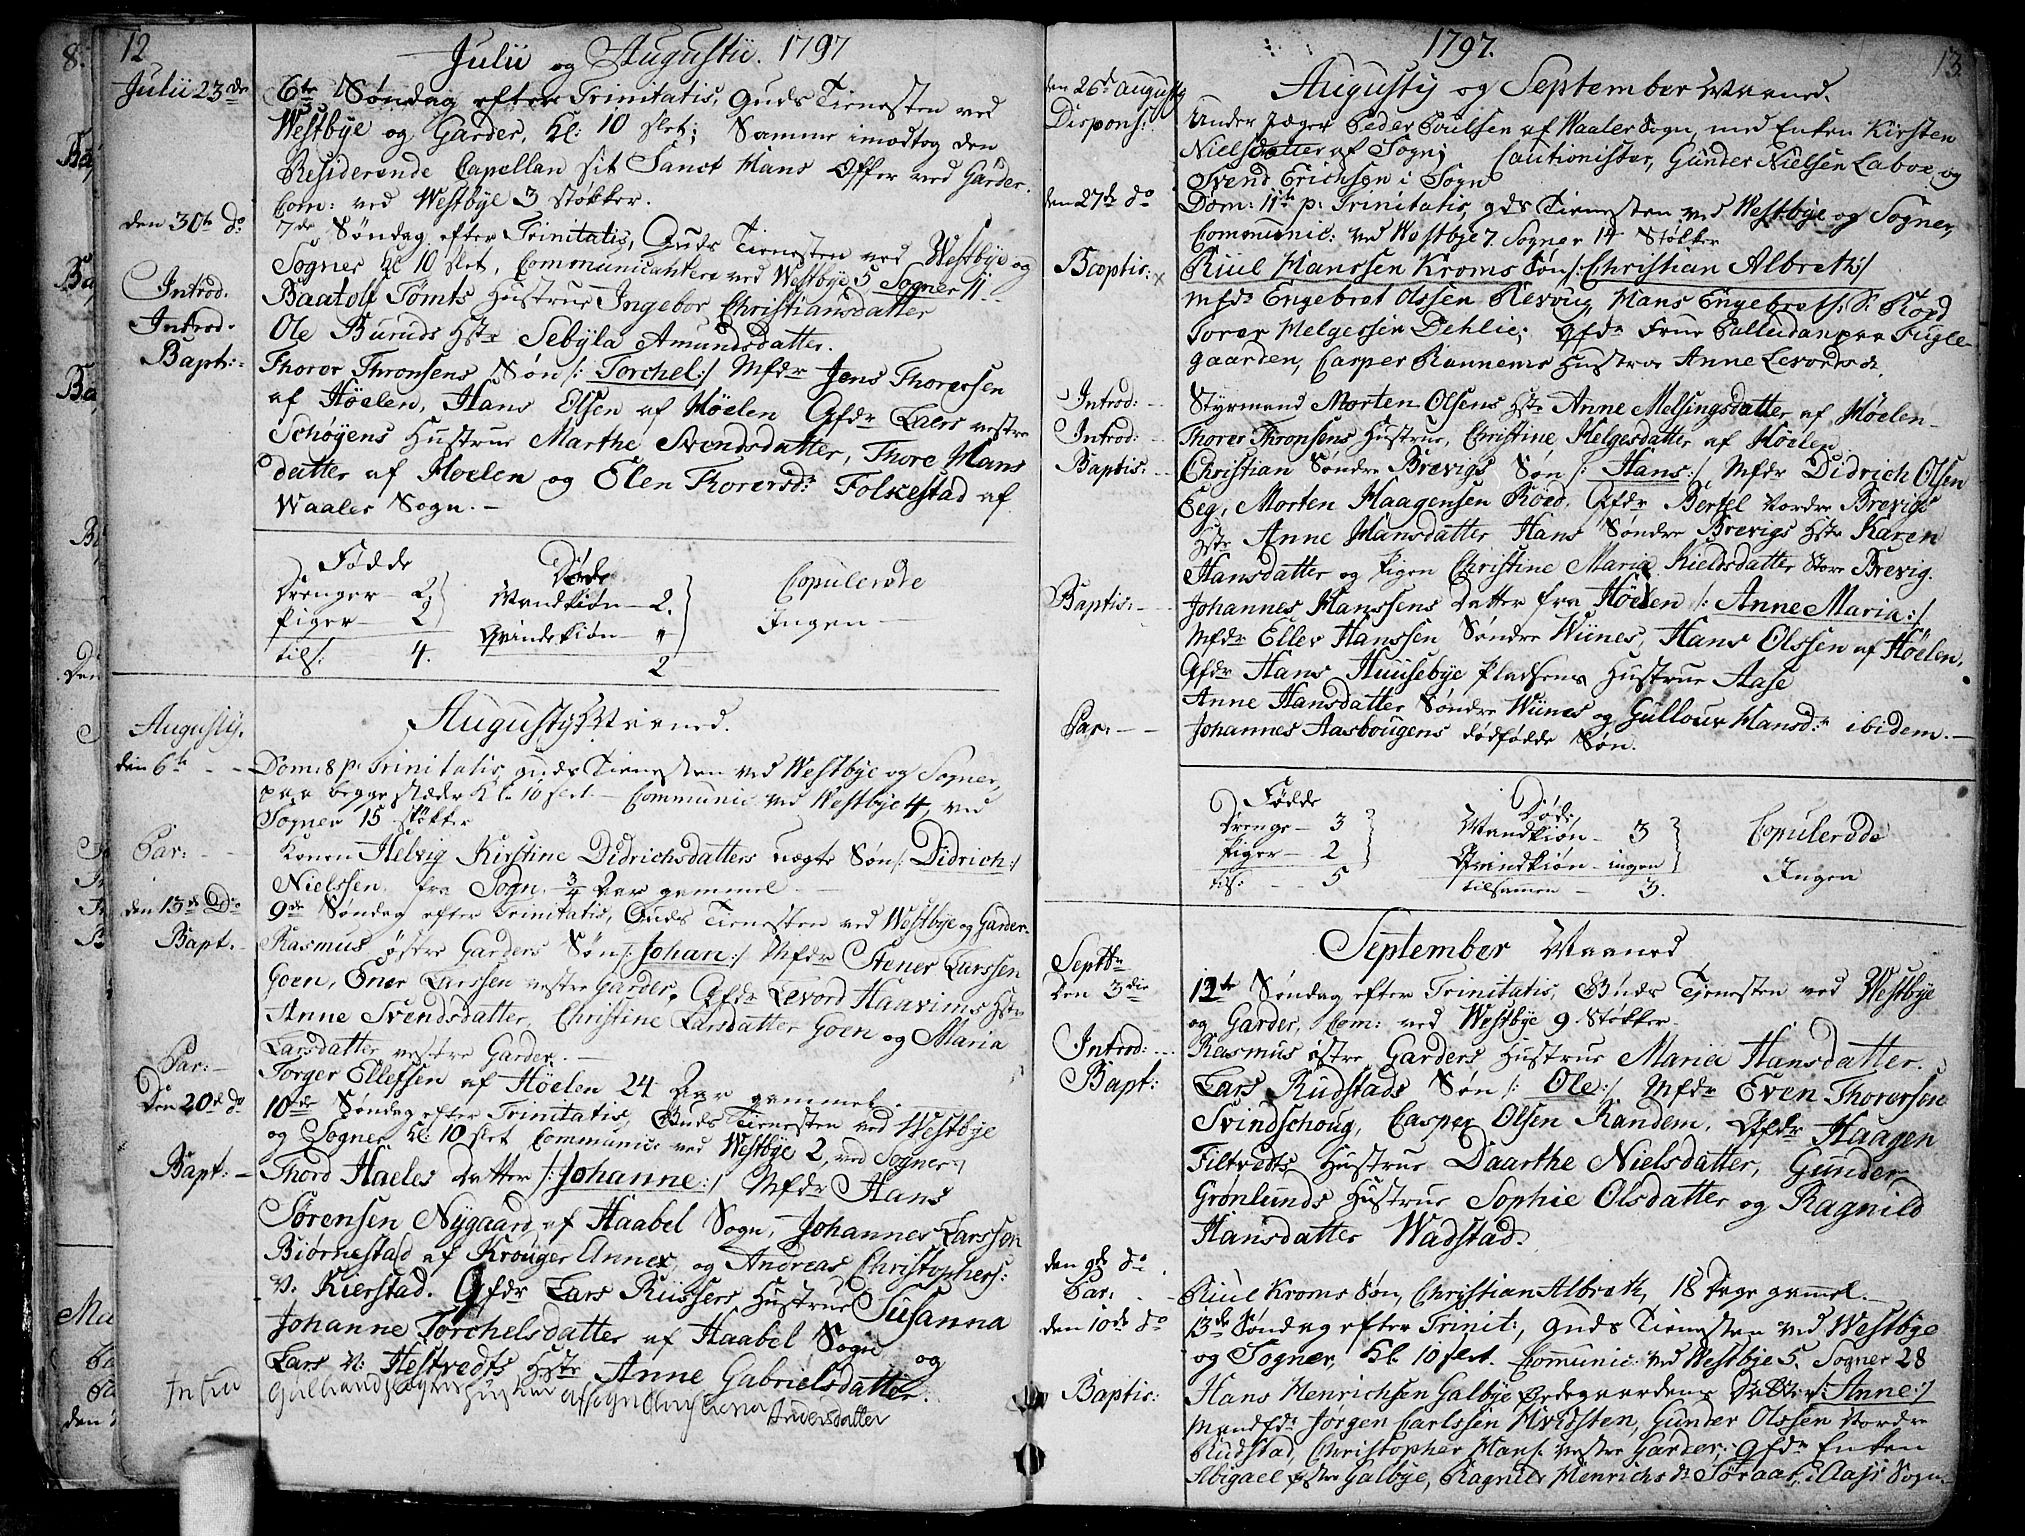 12
Julii og Augustii. 1797
Julii 23de 6te Søndag efter Trinitatis, Guds Tienesten ved
Westbye og Garder, Kl: 10 slet; Samme imodtog den
Residerende Capellan sit Sanct Hans Offer ved Garder.
Com: ved Westbye 3 støkker.
den 30te do 7de Søndag efter Trinitatis, Guds Tienesten ved Westbye og
Sogner Kl 10 slet, Communicantere ved Westbye 5 Sogner 11.
Introd. Baatolf Tømts Hustrue Ingebor Christiansdatter
Introd. Ole Buruds Hstr Sebyla Amundsdatter.
Bapt: Thorer Thronsens Søn /: Torchel :/ Mfdr Jens Thorersen
af Høelen, Hans Olsen af Høelen Qfdr Laers vestre
Schøyens Hustrue Marthe Svendsdatter, Thore Hans
datter af Hoelen og Elen Thorersd: Folkestad af
Waaler Sogn. –
Fødde Døde Copulerede
Drenger – 2 Mandkiøn – 2. Ingen –
Piger – 2 Qvindekiøn – "
tils: 4. 2
Augusty Maaned.
Augusty.
den 6te Dom: 8 p: Trinitatis, guds Tienesten ved Westbye og Sogner,
paa begge stæder Kl. 10 slet. – Communic: ved Westbye 4, ved
Sogner 15 støkker
Par: Konen Helvig Kirstine Didrichsdatters uægte Søn /: Didrich :/
Nielssen, fra Sogn, 3/4 Aar gammel –
den 13de Do 9de Søndag efter Trinitatis, Guds Tienesten ved Westbye og Garder.
Bapt. – Rasmus østre Garders Søn /: Johan :/ Mfdr Stener Larssen
Goen, Ener Larssen vestre Garder, Qfdr Levord Haavims Hstr
Anne Svendsdatter, Christine Larsdatter Goen og Maria
Larsdatter vestre Garder. –
Par: – Torger Ellefsen af Høelen 24 Aar gammel.
Den 20de do 10de Søndag efter Trinitatis, Guds Tienesten ved Westbye
og Sogner, Kl: 10 slet Communic: ved Westbye 2, ved Sogner
Bapt: – Thord Haeles Datter /: Johanne :/ Mfdr Hans
Sørensen Nygaard af Haabel Sogn, Johannes Larsson
Biørnestad af Krouger Annex, og Andreas Christophers:
v. Kierstad. Qfdr Lars Riissers Hustrue Susanna
Johanne Torchelsdatter af Haabel Sogn og
Lars v: Hestvedts Hstr Anne Gabrielsdatter.
Andersdatter
1797. 13
Augusty og September Maaned.
den 26de Augusty
Dispons: Under Jæger Peder Poulsen af Waaler Sogn, med Enken Kirsten
Nielsdatter af Sogn; Cautionister, Gunder Nielsen Laboe, og
Svend Erichsen i Sogn
den 27de do Dom: 11te p: Trinitatis, gds Tienesten ved Westbye og Sogner,
Communic: ved Westbye 7. Sogner 14 Støkker
Baptis: x Riul Hanssen Kroms Søn /: Christian Albreth :/
mfdr Engebret Olssen Kervig, Hans Engebretss: S: Roed
Torer Helgessen Dehlie; Qfdr Frue Palludan paa Fugle-
gaarden, Casper Rannems Hustroe Anne Levordsd.
Introd: Styrmand Morten Olsens Hstr Anne Melsingsdatter af Høelen –
Introd: Thorer Thronsens Hustrue, Christine Helgesdatter af Høelen
Baptis: Christian Søndre Brevigs Søn /: Hans :/ Mfdr Didrich Olsen
Eeg, Morten Haagensen Roed, Qfdr Bertel Nordre Brevigs
Hstr Anne Hansdatter Hans Søndre Brevigs Hstr Karen
Hansdatter og Pigen Christine Maria Kieldsdatter Store Brevig.
Baptis: – Johannes Hanssens Datter fra Høelen /: Anne Maria :/
Mfdr Eller Hanssen Søndre Wiines, Hans Olssen af Høelen,
Qfdr Hans Huusebye Pladsens Hustrue Aase
Anne Hansdatter Søndre Wiines og Gullour Hansd:r ibidem. –
Par: – – Johannes Aasbougens dødfødde Søn.
Fødde Døde, Copulerede
Drenge – 3 Mandkiøn – 3 Ingen
Piger – 2 Qvindkiøn – ingen
tils: – 5 tilsamen – 3.
September Maaned
Septbr
Den 3die 12te Søndag efter Trinitatis, Guds Tjenesten ved Westbye
og Garder, Com: ved Westbye 9 Støkker.
Introd: Rasmus østre Garders Hustrue Maria Hansdatter.
Bapt: Lars Rudstads Søn /: Ole :/ Mfdr Even Thorersen
Svindschoug, Casper Olsen Randem, Qfdr Haagen
Filtvedts Hustrue Daarthe Nielsdatter, Gunder
Grønlunds Hustrue Sophie Olsdatter og Ragnild
Hansdatter Wadstad.
den 9de do
Par: Riul Kroms Søn, Christian Albreth, 18 Dage gammel. –
den 10de do 13de Søndag efter Trinit:, Guds Tienesten ved Westbye
og Sogner, Kl. 10 slet. Communic: ved Westbye 5. Sogner 28
Baptis: Hans Henrichsen Galbye Ødegaardens Datter /: Anne :/
Mandfdr Jørgen Carlssen Hvidsten, Gunder Olssen Nordre
Rudstad, Christopher Hans: vestre Garder; Qfdr Enken
Abigael østre Galbye, Ragnild Henrichsdr Søraas, i Aass Sogn.